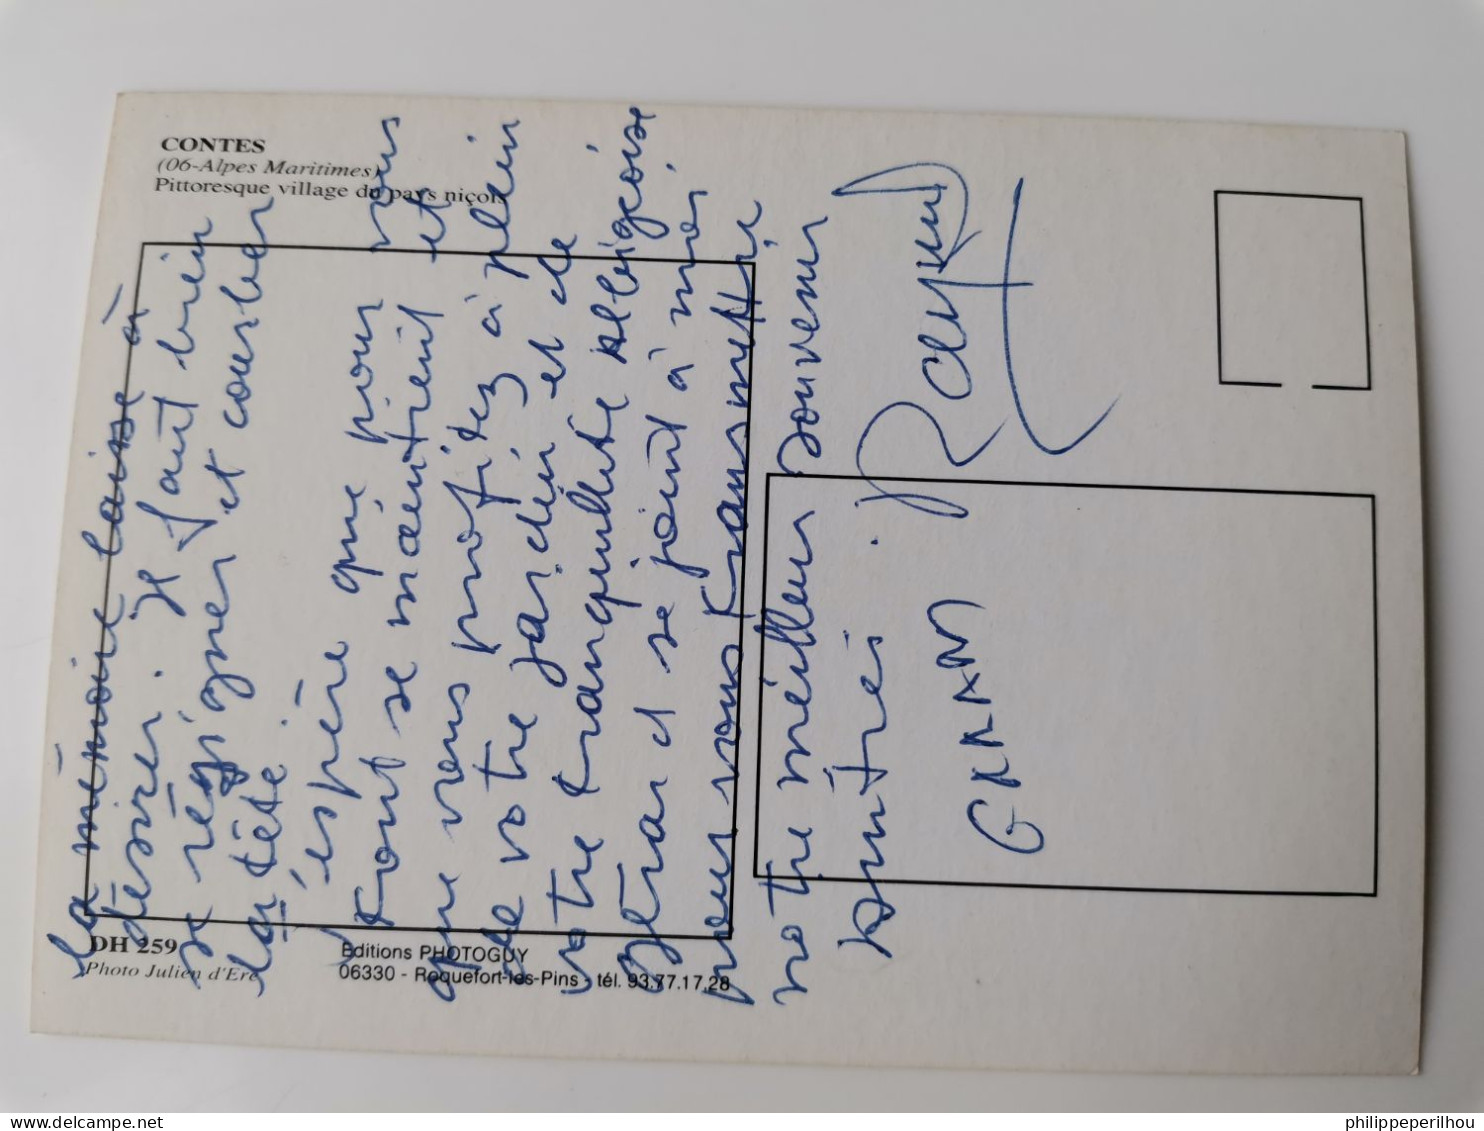 CONTES
(06-Alpes Maritimes)
Pittoresque village du pays niçois
la mémoire laisse à
desirer. Il faut bien
se résigner et courber
la tête.
J'espère que pour vous
tout se maintient et
que vous profitez à plein
de votre jardin et de
votre tranquillité albigeoise
et se joint à moi
pour vous transmettre
notre meilleur souvenir
Amitiés.
Raymond
GRAND
DH 259
Photo Julien d'Ere
Editions PHOTOGUY
06330 - Roquefort-les-Pins - tél. 93.77.17.28
philippeperilhou
delcampe.net